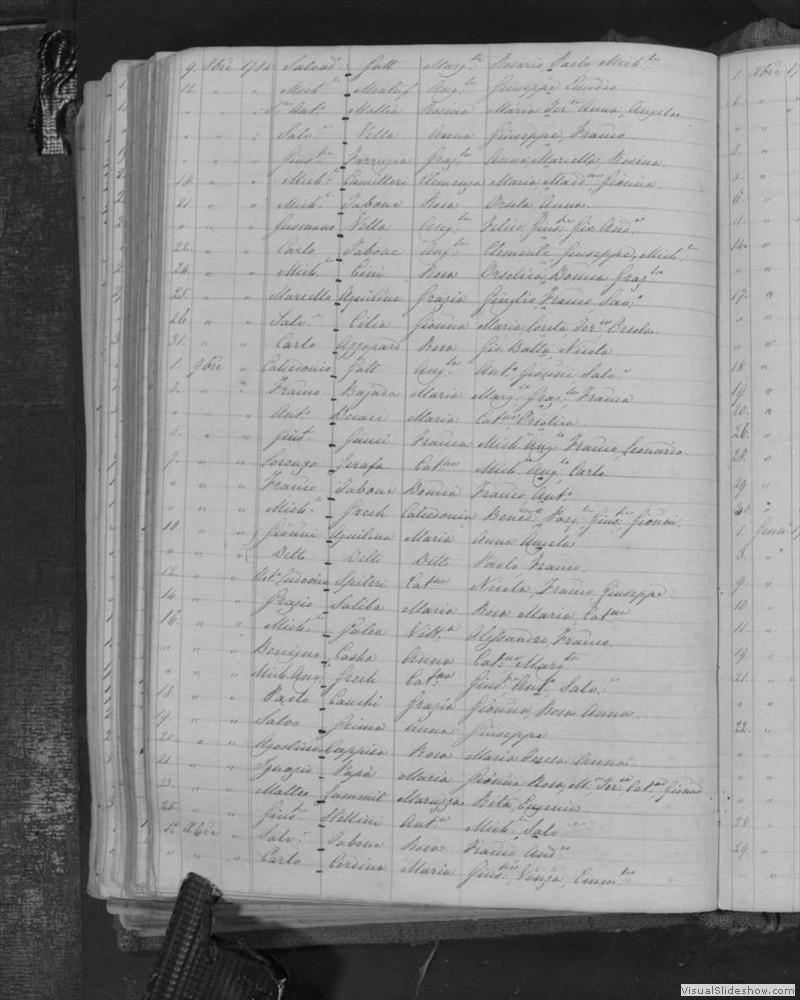 9. Xbre 1784 Salvad.e Gatt Marg.ta Rosario, Paolo Mich.le
12. " " Mich.le Ang.la Giuseppe
" " " Ant.o Mallia Rosina Maria Ter.sa Anna, Angela
" " " Salv.e Vella Anna Giuseppe, Franco
" " " Gius.e Farrugia Graz.la Anna Mariella Rosina
18. " " Mich.le Camilleri Clemenza Maria Madd.na Gionna
21. " " Mich.le Tabone Rosa Orsola Anna
" " " Gusmano Vella Ang.la Felice Gius.e Gio And.a
22. " " Carlo Tabone Ang.la Clemente Giuseppe, Mich.le
24. " " Mich.le Cini Rosa Orsolica, Bonna Graz.la
25. " " Marcello Aquilina Grazia Giuglio Franco Sav.o
26. " " Salv.e Cilia Gionna Maria Loreta Ter.sa Orsola
31. " " Carlo Azzopard Rosa Gio Batta, Nicola
1. 9bre " Calcidonio Gatt Ang.la Ant.o Gionni, Salv.e
3. " " Franco Bajada Maria Marg.ta Graz.la Franca
" " " Ant.o Maria Cat.na Orsolica
5. " " Gius.e Gauci Franca Mich.le Ang.lo Franco, Leonardo
7. " " Lorenzo Zerafa Cat.na Mich.le Ang.lo Carlo
" " " Franco Tabone Bonna Franco Ant.o
" " " Mich.le Grech Calcidonia Bened.o Gius.e Gionni
10. " " Gionni Aquilina Maria Anna Angela
" " " Detto Detto Detto Paolo Franco
12. " " Not.o Ludovico Spiteri Cat.na Nicola, Franco Giuseppe
14. " " Grazio Saliba Maria Rosa Maria, Cat.na
16. " " Mich.le Galea Vitt.a Alessandro, Franco
" " " Benigno Casha Anna Cat.na Marg.ta
" " " Mich Ang.o Grech Cat.na Gius.e Ant.o Salv.e
18. " " Paolo Cauchi Grazia Gionna, Rosa Anna
19. " " Salvo Grima Anna Giuseppe
20. " " Agostino Cuppica Rosa Maria Teresa Anna
21. " " Ignazio Papà Maria Gionna Rosa M.a Ter.sa Cat.na Gionna
23. " " Matteo Sammut Maruzza Beta Eugenia
25. " " Gius.e Stellini Ant.a Mich.le Salv.e
12. Xbre " Salv.e Tabone Rosa Franco, And.a
" " " Carlo Cordina Maria Gius.e Vinza, Emm.le
1. Xbre 17
17.
18.
19.
20.
26.
28.
29
1. Genn. 17
3.
9
10.
11
19.
21.
22.
28.
29.
VisualSlideshow.com